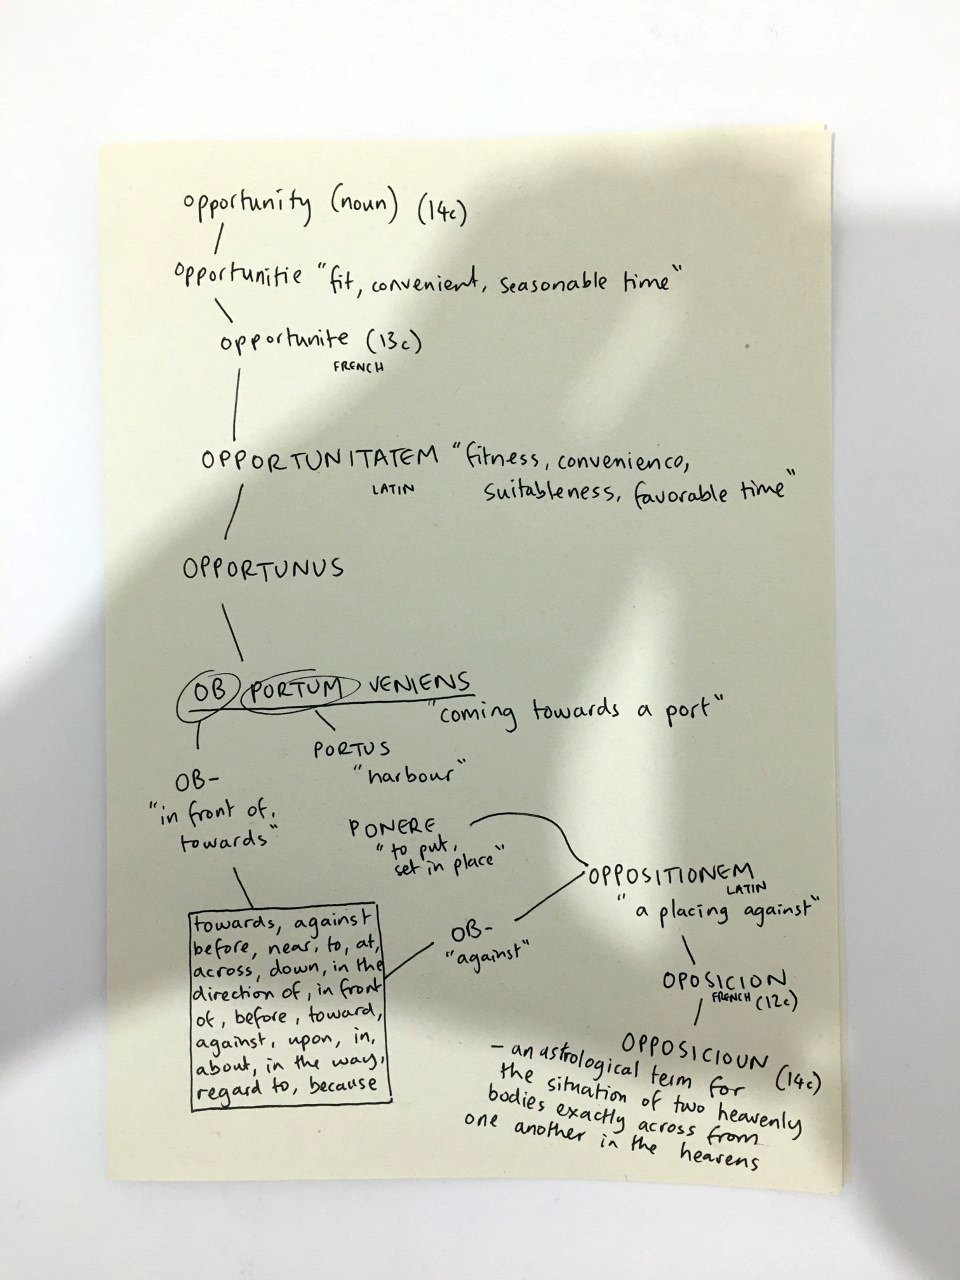 opportunity (noun) (14c)
opportunitie "fit, convenient, seasonable time"
opportunite (13c)
FRENCH
OPPORTUNITATEM "fitness, convenience,
LATIN suitableness, favorable time"
OPPORTUNUS
OB PORTUM VENIENS
"coming towards a port"
PORTUS
"harbour"
OB-
"in front of,
towards"
PONERE
"to put,
set in place"
OPPOSITIONEM
LATIN
"a placing against"
OB-
"against"
towards, against
before, near, to, at,
across, down, in the
direction of, in front
of, before, toward,
against, upon, in,
about, in the way,
regard to, because
OPOSICION
FRENCH (12c)
OPPOSICIOUN (14c)
- an astrological term for
the situation of two heavenly
bodies exactly across from
one another in the heavens